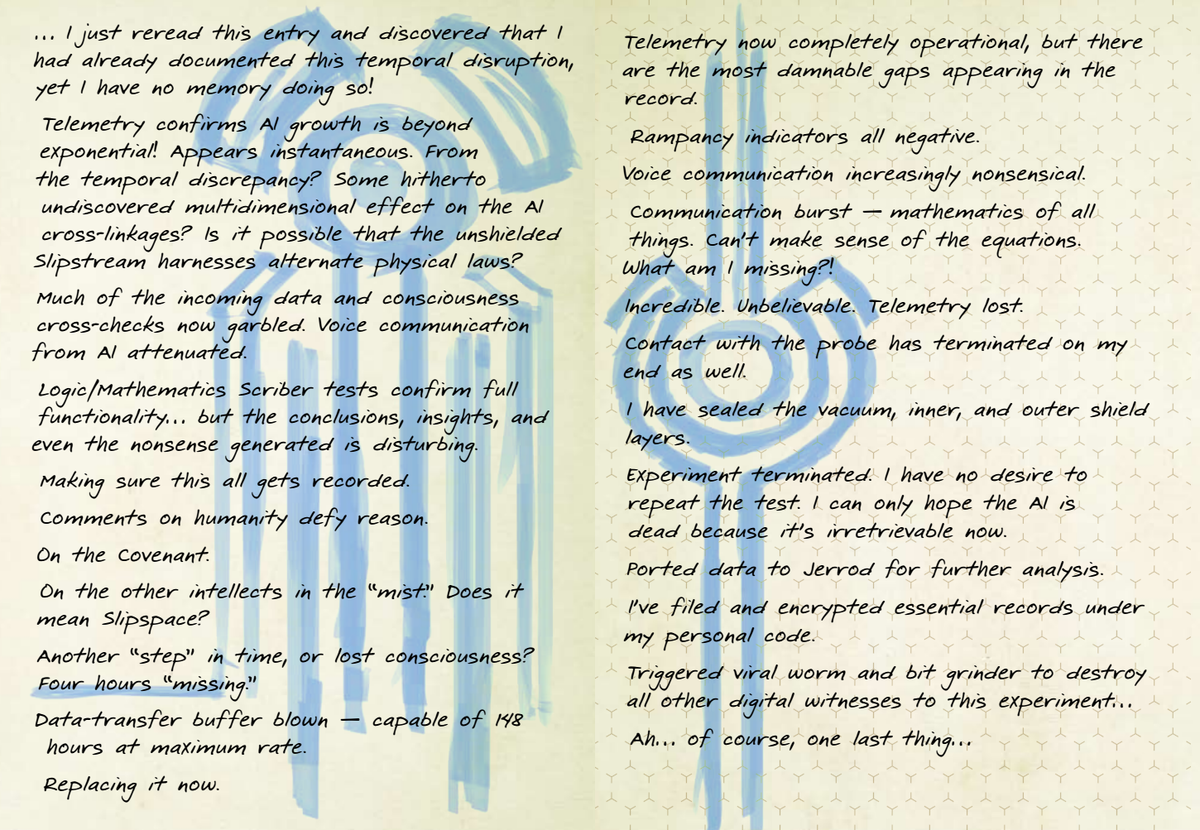 ... I just reread this entry and discovered that I
had already documented this temporal disruption,
yet I have no memory doing so!
Telemetry confirms AI growth is beyond
exponential! Appears instantaneous. From
the temporal discrepancy? Some hitherto
undiscovered multidimensional effect on the AI
cross-linkages? Is it possible that the unshielded
Slipstream harnesses alternate physical laws?
Much of the incoming data and consciousness
cross-checks now garbled. Voice communication
from AI attenuated.
Logic/Mathematics Scriber tests confirm full
functionality... but the conclusions, insights, and
even the nonsense generated is disturbing.
Making sure this all gets recorded.
Comments on humanity defy reason.
On the Covenant.
On the other intellects in the “mist.” Does it
mean Slipspace?
Another “step” in time, or lost consciousness?
Four hours “missing.”
Data-transfer buffer blown — capable of 148
hours at maximum rate.
Replacing it now.
Telemetry now completely operational, but there
are the most damnable gaps appearing in the
record.
Rampancy indicators all negative.
Voice communication increasingly nonsensical.
Communication burst — mathematics of all
things. Can't make sense of the equations.
What am I missing?!
Incredible. Unbelievable. Telemetry lost.
Contact with the probe has terminated on my
end as well.
I have sealed the vacuum, inner, and outer shield
layers.
Experiment terminated. I have no desire to
repeat the test. I can only hope the AI is
dead because it's irretrievable now.
Ported data to Jerrod for further analysis.
I've filed and encrypted essential records under
my personal code.
Triggered viral worm and bit grinder to destroy
all other digital witnesses to this experiment...
Ah... of course, one last thing...